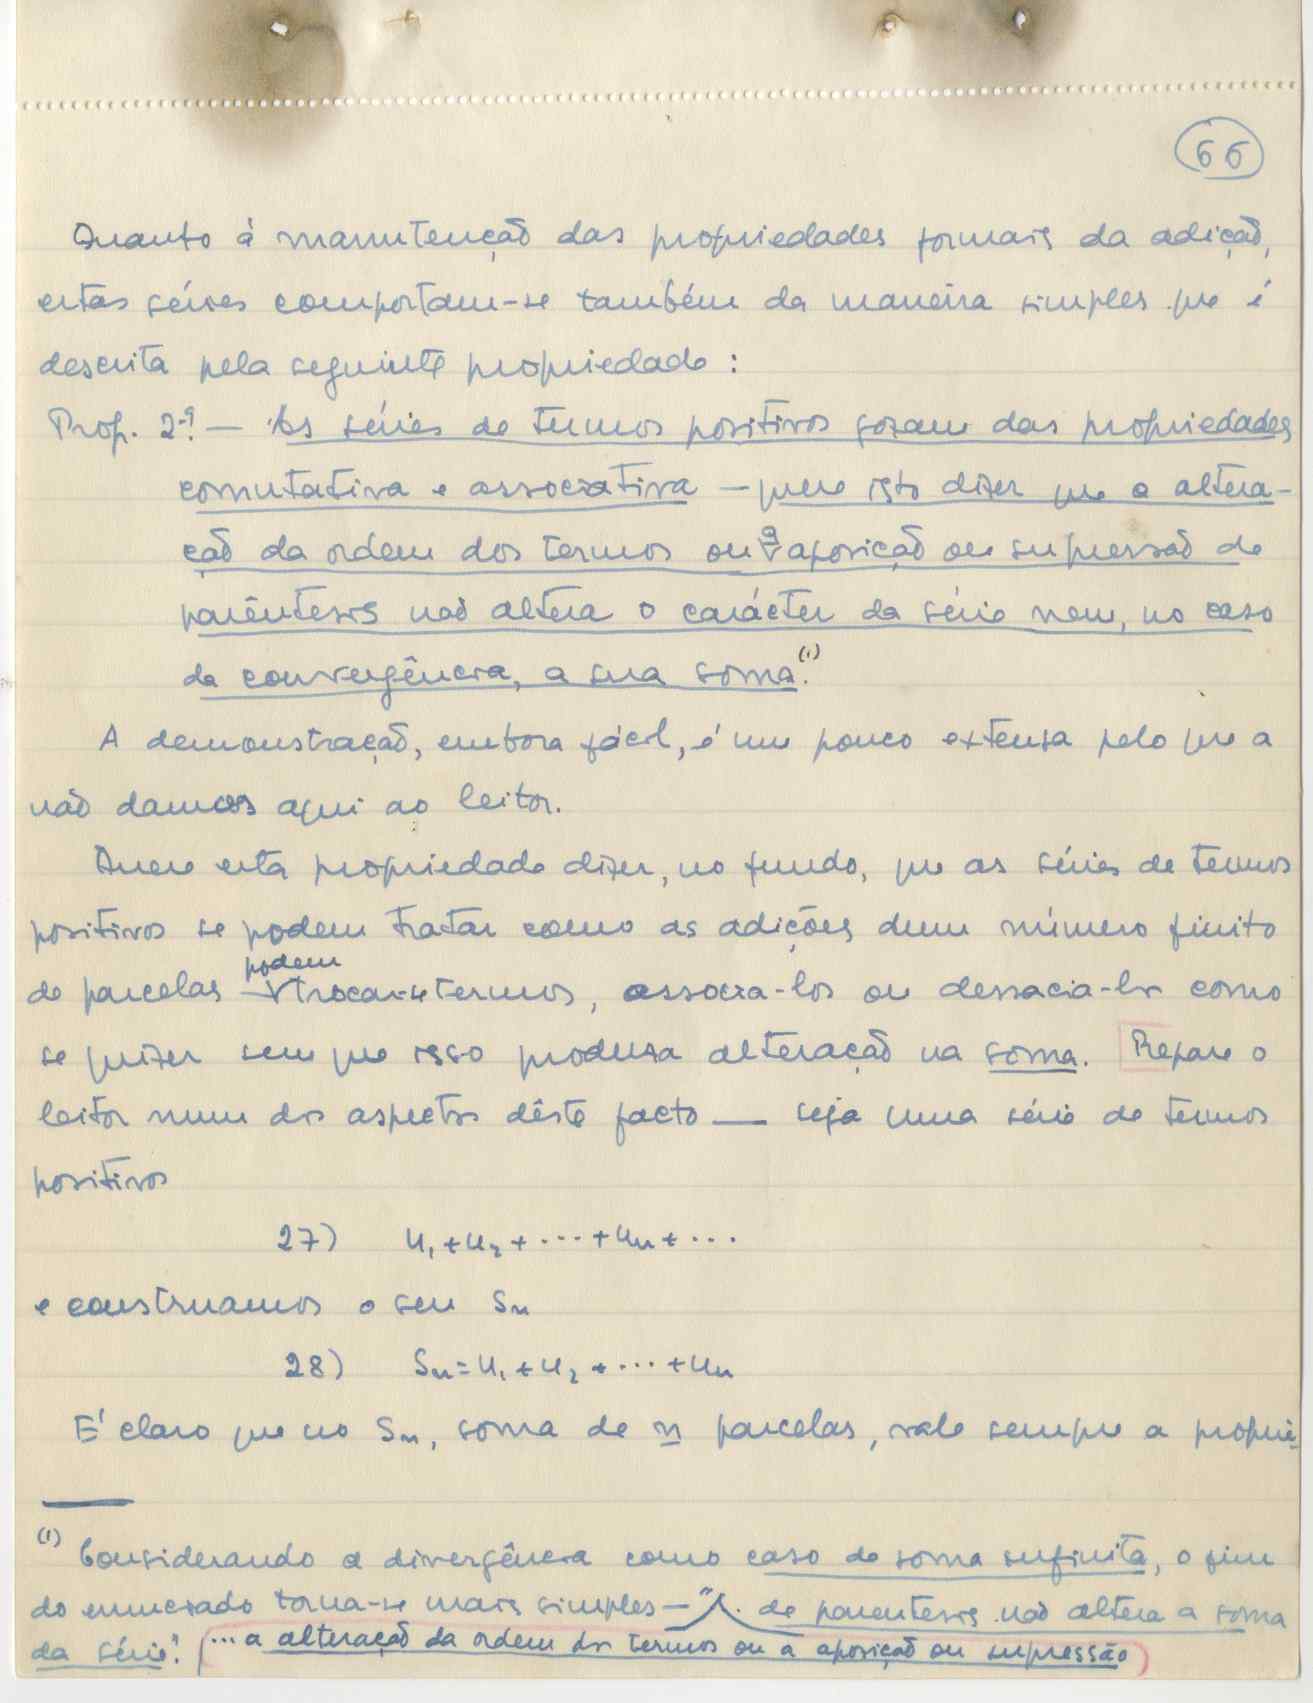 66
Quanto à manutenção das propriedades formais da adição,
estas séries comportam-se também da maneira simples que é
descrita pela seguinte propriedade:
Prop. 2ª. — As séries de termos positivos gozam das propriedades
comutativa e associativa — quere isto dizer que a altera-
ção da ordem dos termos ou a aposição ou supressão de
parêntesis não altera o carácter da série nem, no caso
da convergência, a sua soma.(1)
A demonstração, embora fácil, é um pouco extensa pelo que a
não damos aqui ao leitor.
Quere esta propriedade dizer, no fundo, que as séries de termos
positivos se podem tratar como as adições dum número finito
de parcelas — podem trocar-se termos, associa-los ou dessacia-los como
se quizer sem que isso produza alteração na soma. Repare o
leitor num dos aspectos dêste facto — seja uma série de termos
positivos
27) u₁+u₂+···+uₙ+···
e construamos o seu Sₙ
28) Sₙ=u₁+u₂+···+uₙ
É claro que no Sₙ, soma de n parcelas, vale sempre a proprie-
(1) Considerando a divergência como caso de soma infinita, o fim
do enunciado torna-se mais simples — "... de parentesis não altera a soma
da série". (... a alteração da ordem dos termos ou a aposição ou supressão)